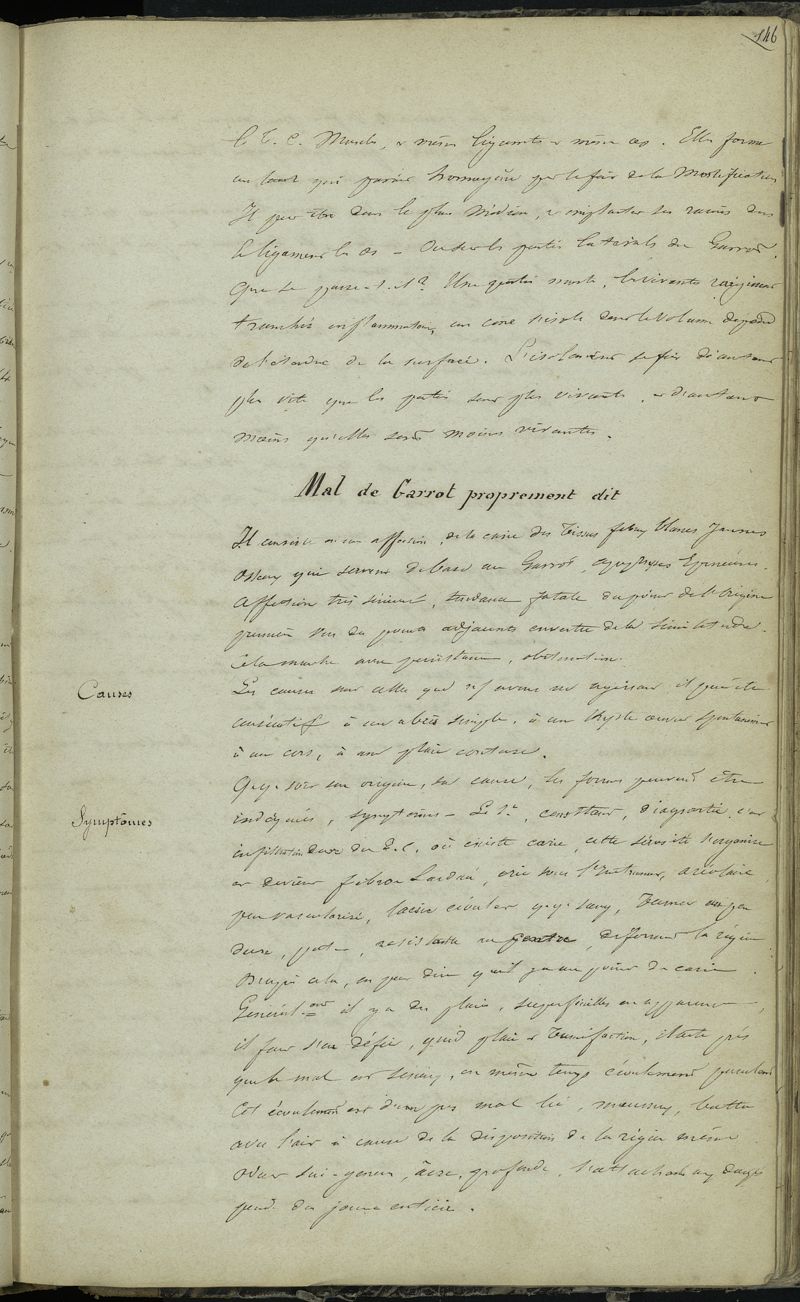 146
le T. C. Muscles, & même ligaments & même os. Elle forme
un tout qui paraît homogène par le fait de la Mortification
Il peut être dans le plan Médian, & implanter ses racines dans
le ligament le os – Ou sur les parties latérales du Garrot.
Que se passe-t-il? Une partie morte, les vivants réagissent
tranchée inflammatoire, un cône isolé dont le volume dépend
de l'étendue de la surface. L'isolement se fait d'autant
plus vite que les parties sont plus vivantes, & d'autant
moins qu'elles sont moins vivantes.
Mal de Garrot proprement dit
Il consiste en une affection, de la carie des Tissus fibreux blancs Jaunes
Osseux qui servent de base au Garrot, apophyses Epineuses.
Affection très sérieuse, tendance fatale du point de l'origine
des points adjacents
Cela marche avec persistance, obstination.
Causes
Les causes sont celles que ns avons vu agissant il peut être
consécutif à un abcès simple, à un Kyste ouvert spontanément
à un cors, à une plaie contuse.
Symptômes
Qq. soit son origine, sa cause, les formes peuvent être
indiquées, symptômes – Le 1er, constant, c'est
infiltration dure du T. C. où existe carie, cette sérosité s'organise
et devient fibreux Lardacé, crie sous l'Instrument, aréolaire,
peu vascularisé, laisse écouler qq. sang, Tumeur un peu
dure, résistante au centre, déformant la région
D'après cela, on peut dire qu'il y a un point de carie.
Généralement il y a des plaies, superficielles en apparence,
il faut s'en défier, quand plaie & Tuméfaction,
que le mal est sérieux, en même temps écoulement purulent
Cet écoulement est d'un pus mal lié, mousseux, battu
avec l'air à cause de la disposition de la région même
Odeur sui-generis, âcre, profonde, s'attachant aux doigts
pendt des jours entiers.